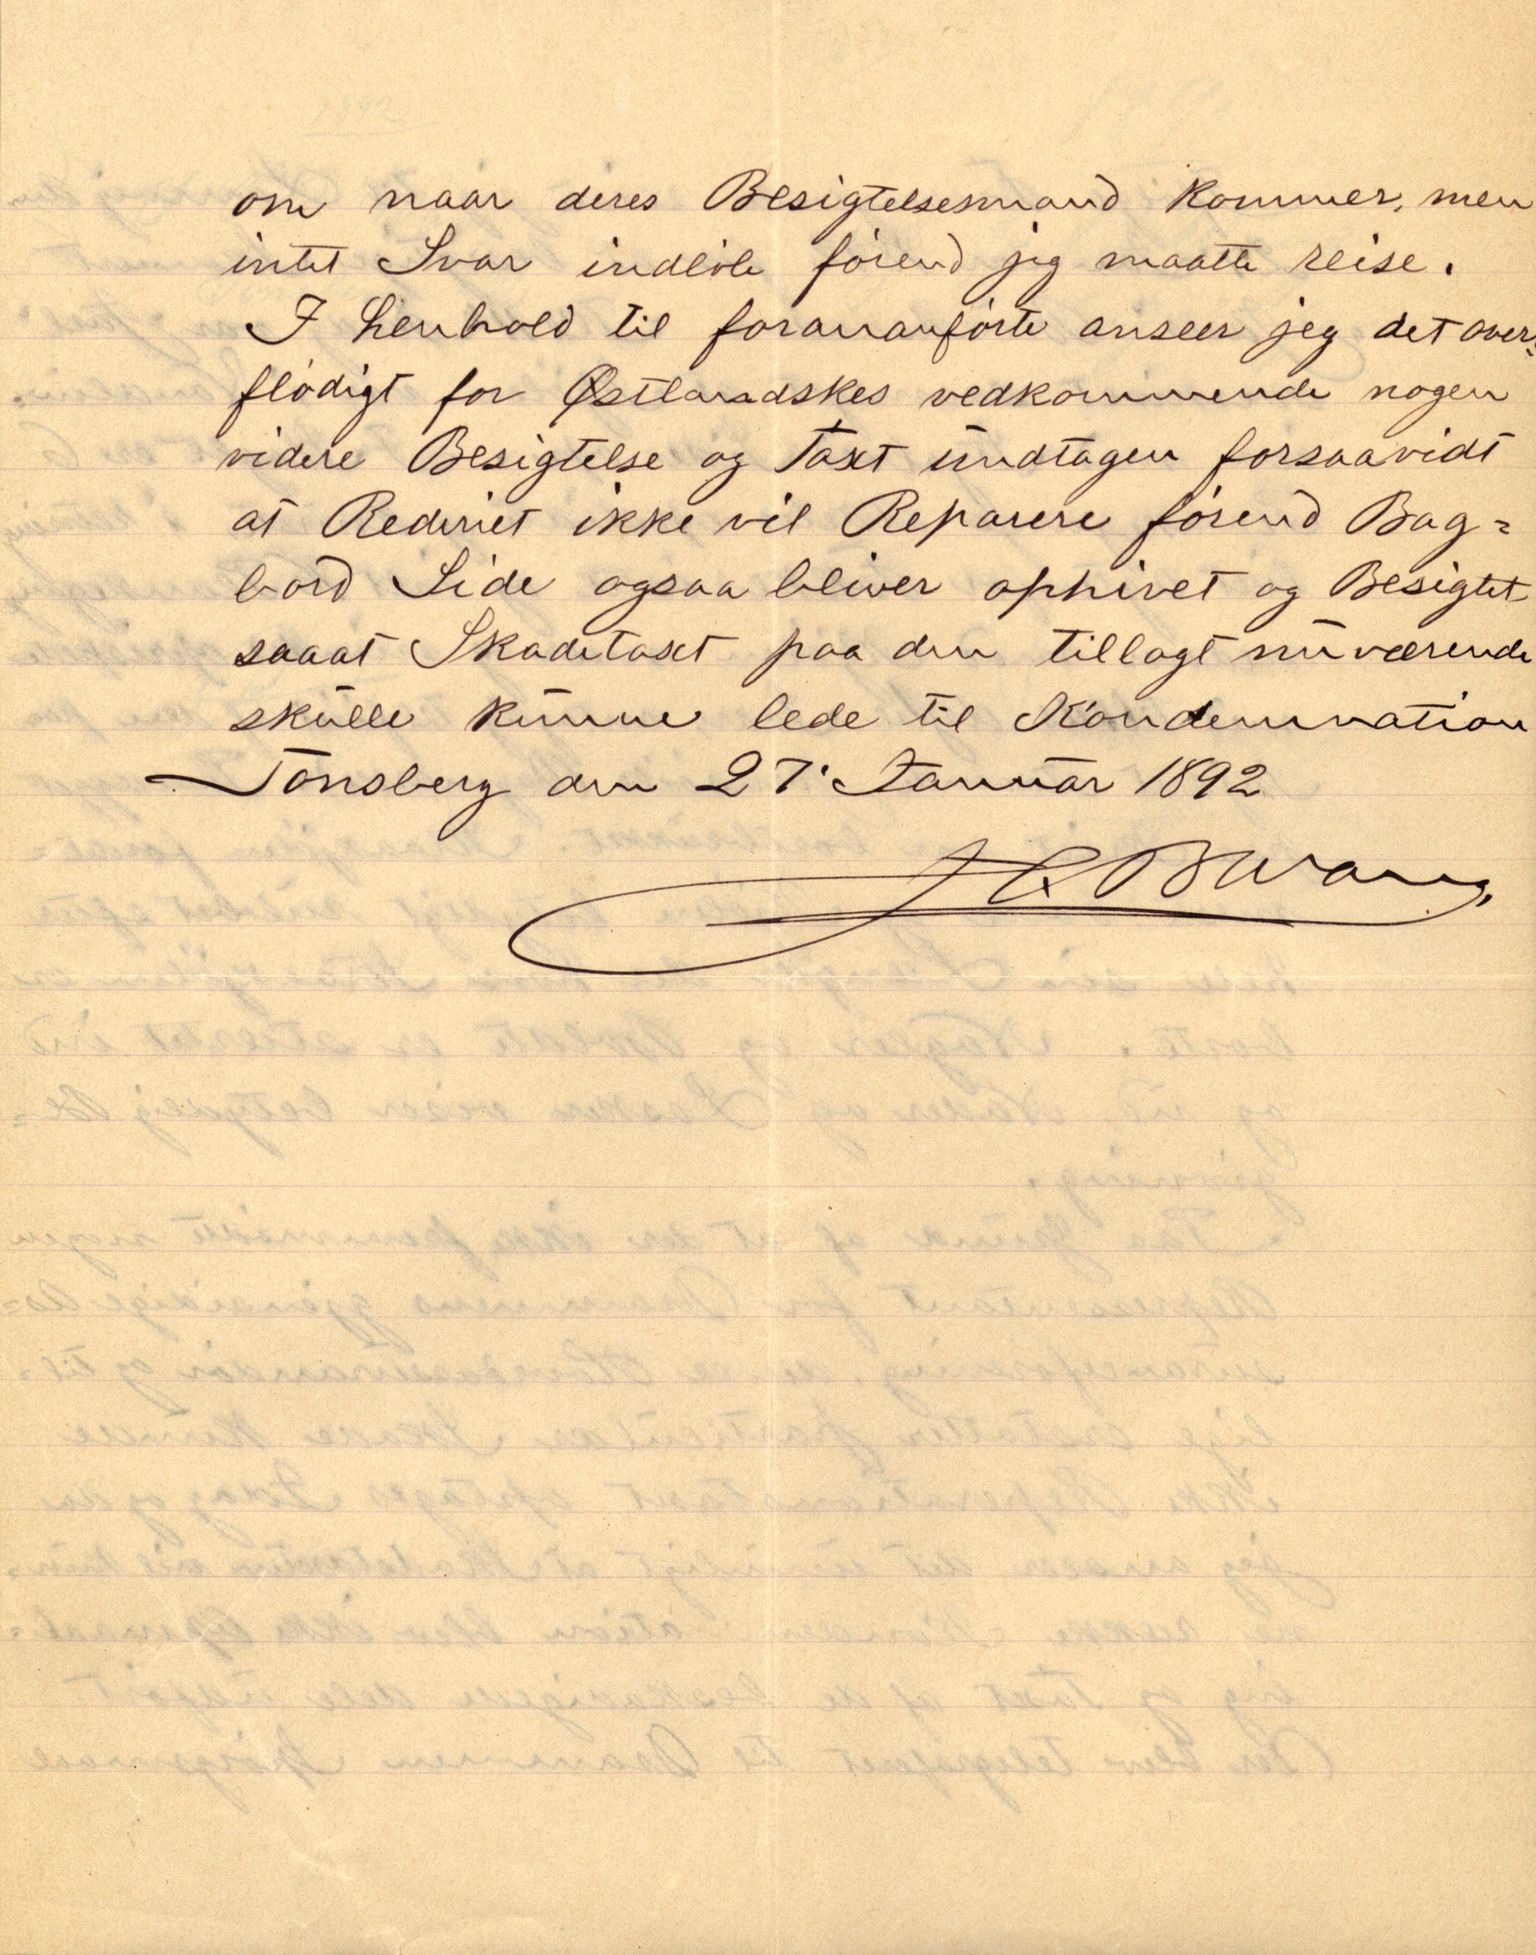 om naar deres Besigtelsesmand kommer, men
intet Svar indløb førend jeg maatte reise.
I Henhold til forananførte anseer jeg det over=
flødigt for Østlandskes vedkommende nogen
videre Besigtelse og Taxt undtagen forsaavidt
at Rederiet ikke vil Reparere førend Bag=
bord Side ogsaa bliver ophivet og Besigtet
saaat Skadetaxt paa den tillagt nuværende
skulle kunne lede til Kondemnation
Tønsberg den 27' Januar 1892